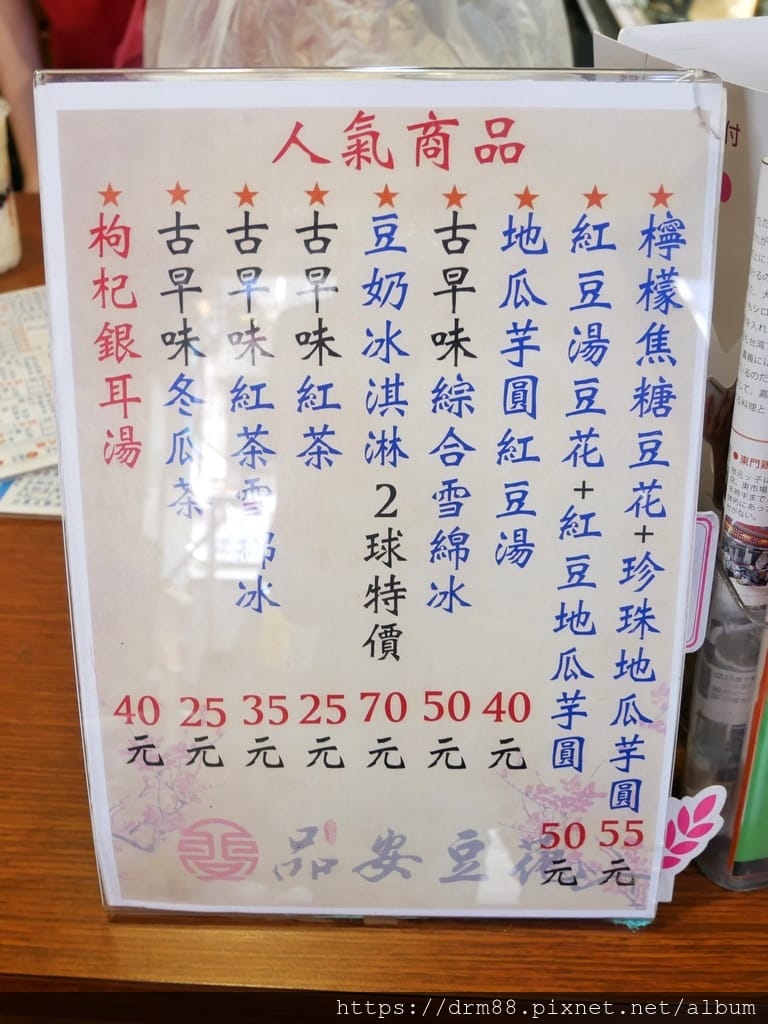 人氣商品
檸檬焦糖豆花+珍珠地瓜芋圓
55元
紅豆湯豆花+紅豆地瓜芋圓
50元
地瓜芋圓紅豆湯
40元
古早味綜合雪綿冰
50元
豆奶冰淇淋2球特價
70元
古早味紅茶
25元
古早味紅茶雪綿冰
35元
古早味冬瓜茶
25元
枸杞銀耳湯
40元
品安豆花
付
東門雞
https://drm88.pixnet.net/album